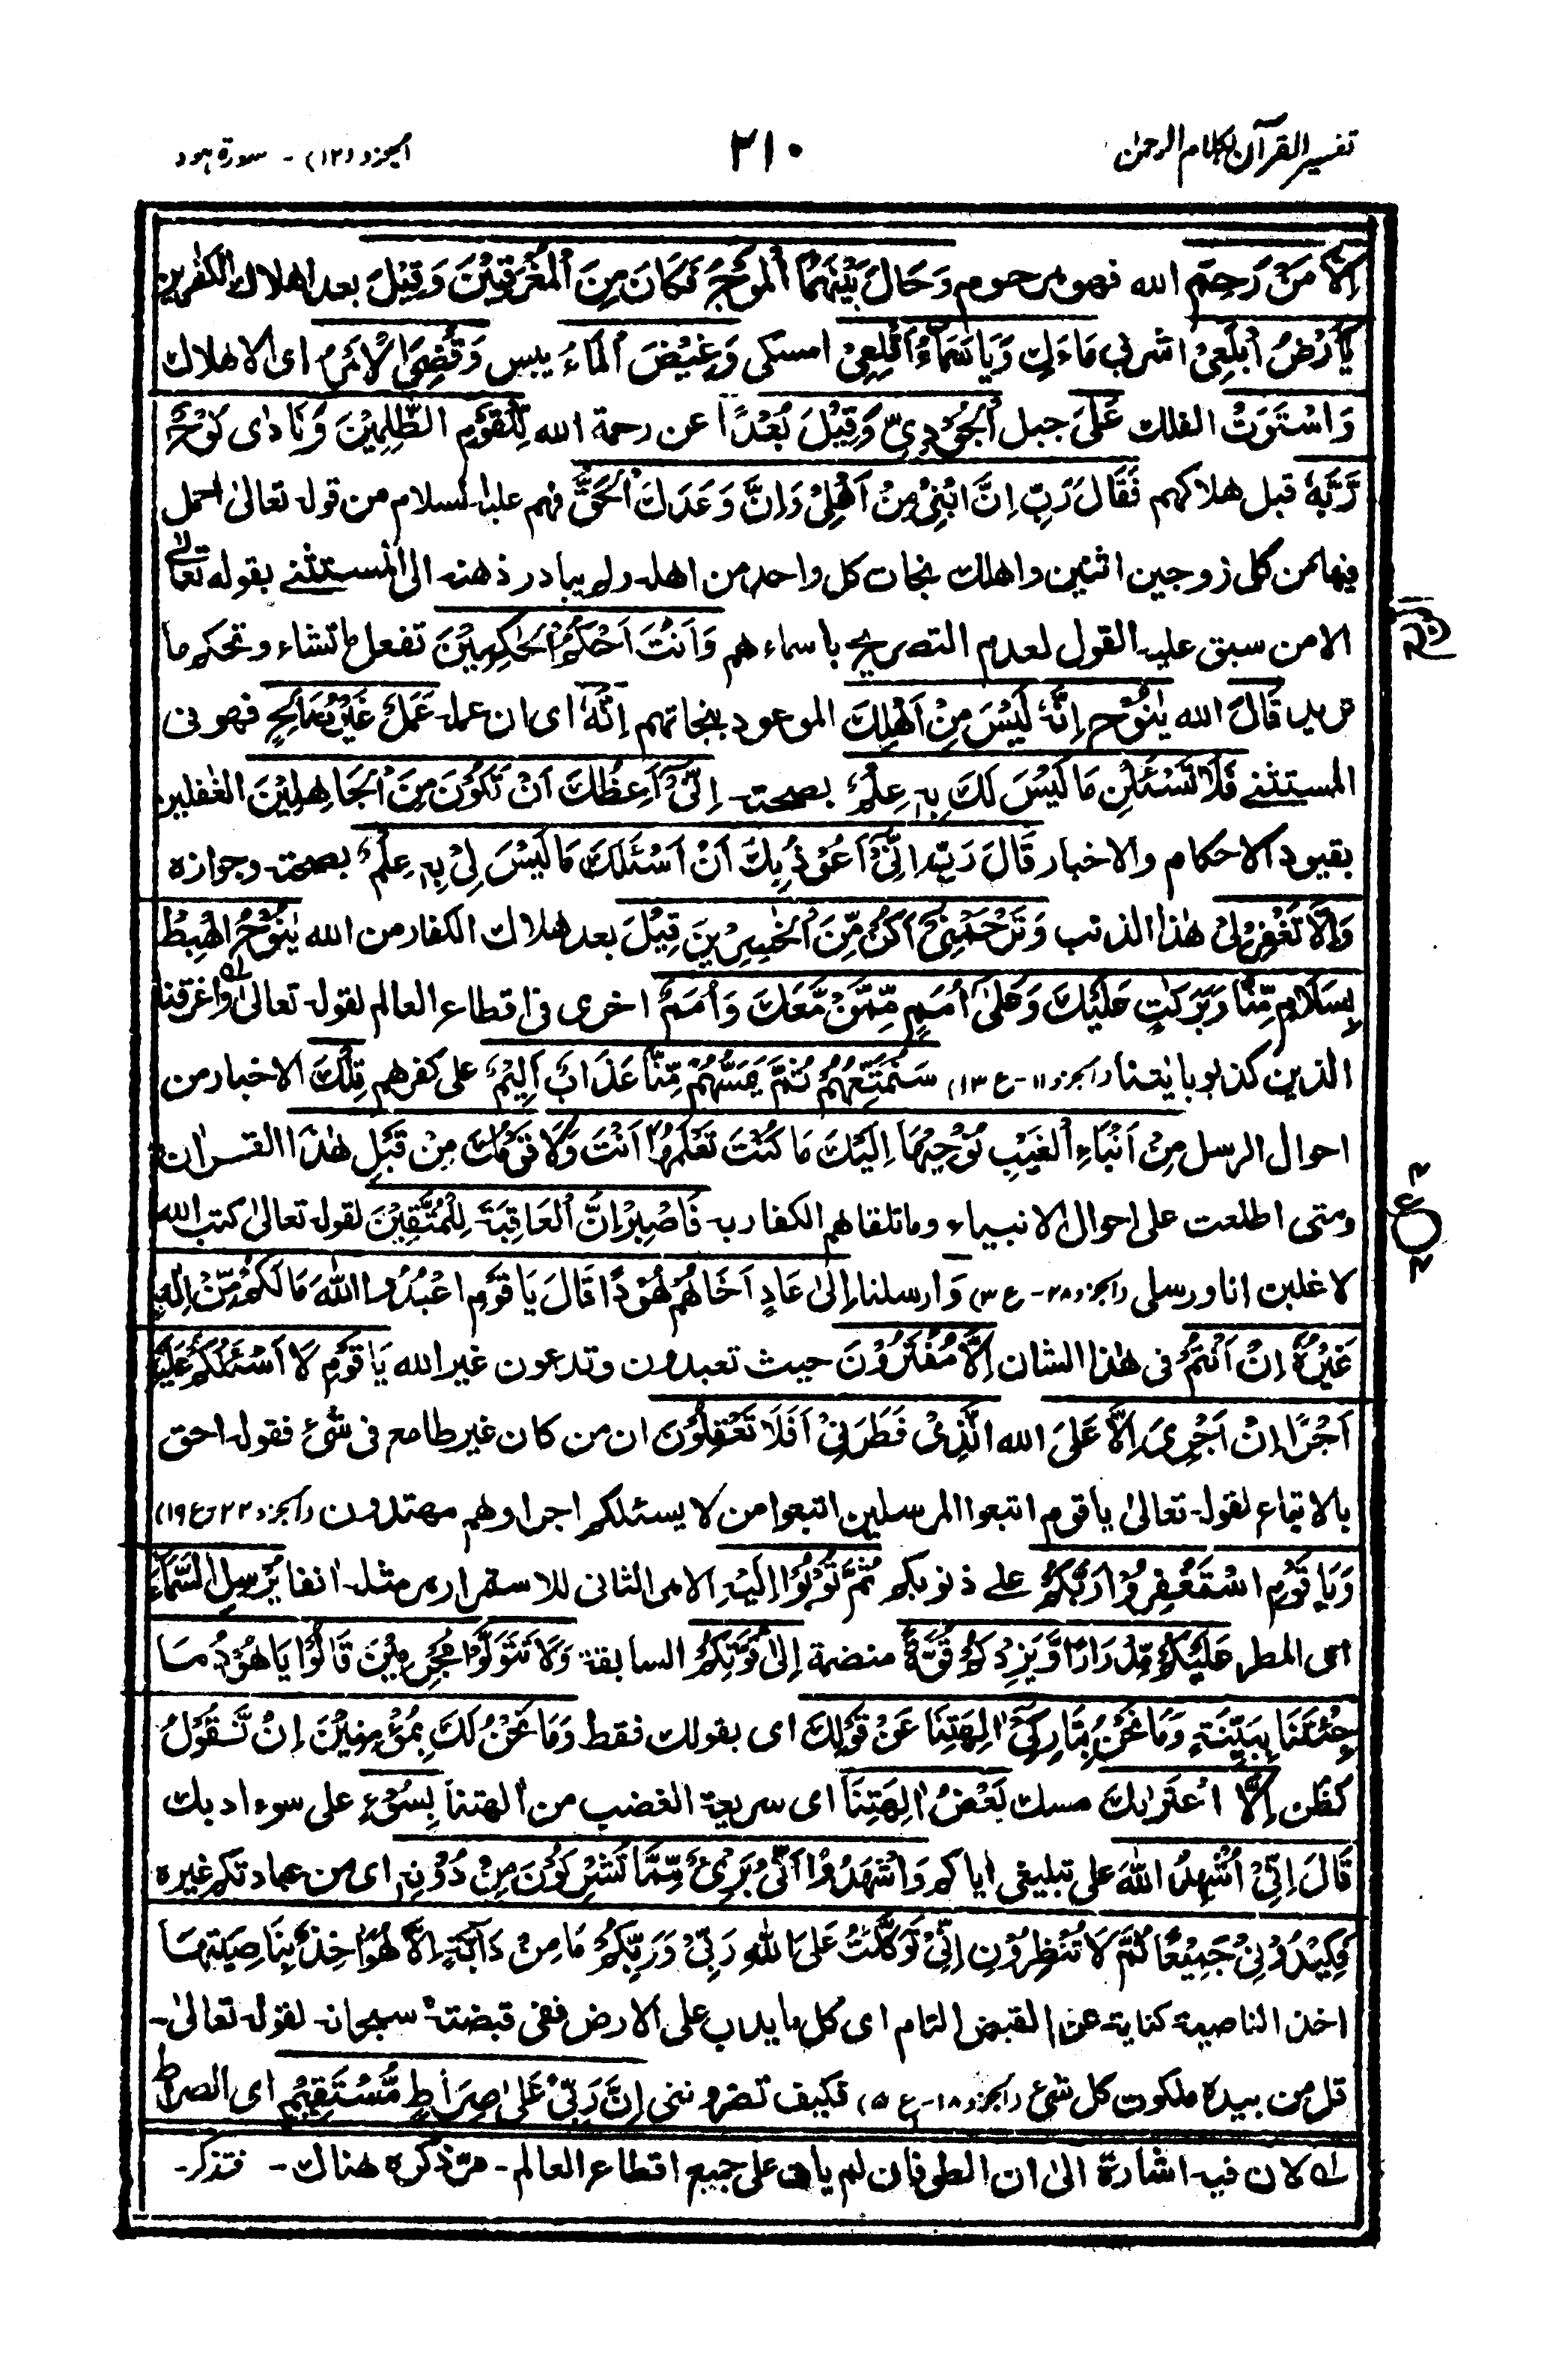 تفسير القرآن بكلام الرحمٰن
٣١٠
الجزء (١٢) - سورة هود
اِلَّا مَنْ رَحِمَ الله فهو مرحوم وَحَالَ بَيْنَهُمَا الْمَوْجُ فَكَانَ مِنَ الْمُغْرَقِيْنَ وَقِيْلَ بعد اهلاك الكٰفرين
يٰٓاَرْضُ ابْلَعِيْ اشربى مَاءَكِ وَيَا سَمَآءُ اَقْلِعِيْ امسكى وَغِيْضَ الْمَاءُ يبس وَقُضِيَ الْاَمْرُ اى الاهلاك
وَاسْتَوَتْ الفلك عَلَى جبل الْجُوْدِيِّ وَقِيْلَ بُعْدًا عن رحمة الله لِّلْقَوْمِ الظّٰلِمِيْنَ وَنَادٰى نُوْحٌ
رَّبَّهٗ قبل هلاكهم فَقَالَ رَبِّ اِنَّ ابْنِيْ مِنْ اَهْلِيْ وَاِنَّ وَعْدَكَ الْحَقُّ فهم عليه السلام من قوله تعالىٰ احمل
فيها من كل زوجين اثنين واهلك نجات كل واحد من اهله ولم يبادر ذهنه الى المستثنٰے بقوله تعالىٰ
الا من سبق عليه القول لعدم التصريح باسماءهم وَاَنْتَ اَحْكَمُ الْحٰكِمِيْنَ تفعل ما تشاء وتحكم ما
تريد قَالَ الله يٰنُوْحُ اِنَّهٗ لَيْسَ مِنْ اَهْلِكَ الموعود بنجاتهم اِنَّهٗ اى ان عمله عَمَلٌ غَيْرُ صَالِحٍ فهو فى
المستثنٰے فَلَا تَسْئَلْنِ مَا لَيْسَ لَكَ بِهٖ عِلْمٌ بصحته اِنِّيْٓ اَعِظُكَ اَنْ تَكُوْنَ مِنَ الْجَاهِلِيْنَ الغٰفلين
بقيود الاحكام والاخبار قَالَ رَبِّ اِنِّيْٓ اَعُوْذُ بِكَ اَنْ اَسْئَلَكَ مَا لَيْسَ لِيْ بِهٖ عِلْمٌ بصحته وجوازه
وَاِلَّا تَغْفِرْ لِيْ هٰذا الذنب وَتَرْحَمْنِيْٓ اَكُنْ مِّنَ الْخٰسِرِيْنَ قِيْلَ بعد هلاك الكفار من الله يٰنُوْحُ اهْبِطْ
بِسَلَامٍ مِّنَّا وَبَرَكٰتٍ عَلَيْكَ وَعَلٰٓى اُمَمٍ مِّمَّنْ مَّعَكَ وَاُمَمٌ اخرى فى اقطاع العالم لقوله تعالىٰ واغرقنا
الذين كذبوا باٰيٰتنا (الجزء ١١ - ع ١٣) سَنُمَتِّعُهُمْ ثُمَّ يَمَسُّهُمْ مِّنَّا عَذَابٌ اَلِيْمٌ على كفرهم تِلْكَ الاخبار من
احوال الرسل مِنْ اَنْبَاءِ الْغَيْبِ نُوْحِيْهَا اِلَيْكَ مَا كُنْتَ تَعْلَمُهَا اَنْتَ وَلَا قَوْمُكَ مِنْ قَبْلِ هٰذَا القراٰن
ومتى اطلعت على احوال الانبياء وما تلقاهم الكفار به فَاصْبِرْ اِنَّ الْعَاقِبَةَ لِلْمُتَّقِيْنَ لقوله تعالىٰ كتب الله
لاغلبن انا ورسلى (الجزء ٢٨ - ع ٣) وَارسلنا اِلٰى عَادٍ اَخَاهُمْ هُوْدًا قَالَ يَا قَوْمِ اعْبُدُوا اللّٰهَ مَا لَكُمْ مِّنْ اِلٰهٍ
غَيْرُهٗ اِنْ اَنْتُمْ فى هٰذا الشان اِلَّا مُفْتَرُوْنَ حيث تعبدون وتدعون غير الله يَا قَوْمِ لَا اَسْئَلُكُمْ عَلَيْهِ
اَجْرًا اِنْ اَجْرِىَ اِلَّا عَلَى الله الَّذِىْ فَطَرَنِيْ اَفَلَا تَعْقِلُوْنَ ان من كان غير طامع فى شئ فقوله احق
بالاتباع لقوله تعالىٰ يا قوم اتبعوا المرسلين اتبعوا من لا يسئلكم اجرا وهم مهتدون (الجزء ٢٢ - ع ١٩)
وَيَا قَوْمِ اسْتَغْفِرُوْا رَبَّكُمْ علے ذنوبكم ثُمَّ تُوْبُوْا اِلَيْهِ الامر الثانى للاستمرار مر مثله اٰنفا يُرْسِلِ السَّمَاءَ
اى المطر عَلَيْكُمْ مِّدْرَارًا وَّيَزِدْكُمْ قُوَّةً منضمة اِلٰى قُوَّتِكُمْ السابقة وَلَا تَتَوَلَّوْا مُجْرِمِيْنَ قَالُوْا يَا هُوْدُ مَا
جِئْتَنَا بِبَيِّنَةٍ وَمَا نَحْنُ بِتَارِكِيْٓ اٰلِهَتِنَا عَنْ قَوْلِكَ اى بقولك فقط وَمَا نَحْنُ لَكَ بِمُؤْمِنِيْنَ اِنْ نَّقُوْلُ
نظن اِلَّا اعْتَرٰىكَ مسك بَعْضُ اٰلِهَتِنَا اى سريعة الغضب من اٰلهتنا بِسُوْءٍ على سوء ادبك
قَالَ اِنِّيْ اُشْهِدُ اللّٰهَ على تبليغى اياكم وَاشْهَدُوْا اَنِّيْ بَرِيْءٌ مِّمَّا تُشْرِكُوْنَ مِنْ دُوْنِهٖ اى من عبادتكم غيره
فَكِيْدُوْنِيْ جَمِيْعًا ثُمَّ لَا تُنْظِرُوْنِ اِنِّيْ تَوَكَّلْتُ عَلَى اللّٰهِ رَبِّيْ وَرَبِّكُمْ مَا مِنْ دَآبَّةٍ اِلَّا هُوَ اٰخِذٌ بِنَاصِيَتِهَا
اخذ الناصية كناية عن القبض التام اى كل ما يدب على الارض ففى قبضته سبحانه لقوله تعالىٰ-
قل من بيده ملكوت كل شئ (الجزء ١٨ - ع ٥) فكيف تضروننى اِنَّ رَبِّيْ عَلٰى صِرَاطٍ مُّسْتَقِيْمٍ اى الصراط
لٰه لان فيه اشارة الىٰ ان الطوفان لم يات على جميع اقطاع العالم - مر ذكره هناك - فتذكر-